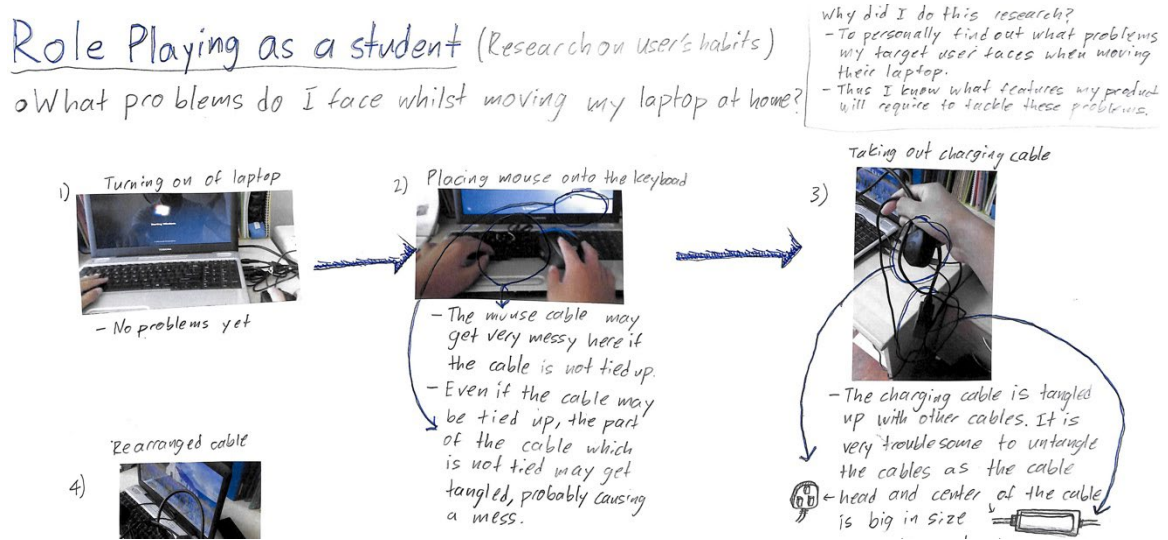 Role Playing as a student (Research on user's habits)
o What problems do I face whilst moving my laptop at home?
Why did I do this research?
- To personally find out what problems
my target user faces when moving
their laptop.
- Thus I know what features my product
will require to tackle these problems.
1) Turning on of laptop
- No problems yet
2) Placing mouse onto the keyboad
- The mouse cable may
get very messy here if
the cable is not tied up.
- Even if the cable may
be tied up, the part
of the cable which
is not tied may get
tangled, probably causing
a mess.
3) Taking out charging cable
- The charging cable is tangled
up with other cables. It is
very troublesome to untangle
the cables as the cable
head and center of the cable
is big in size
4) Rearranged cable